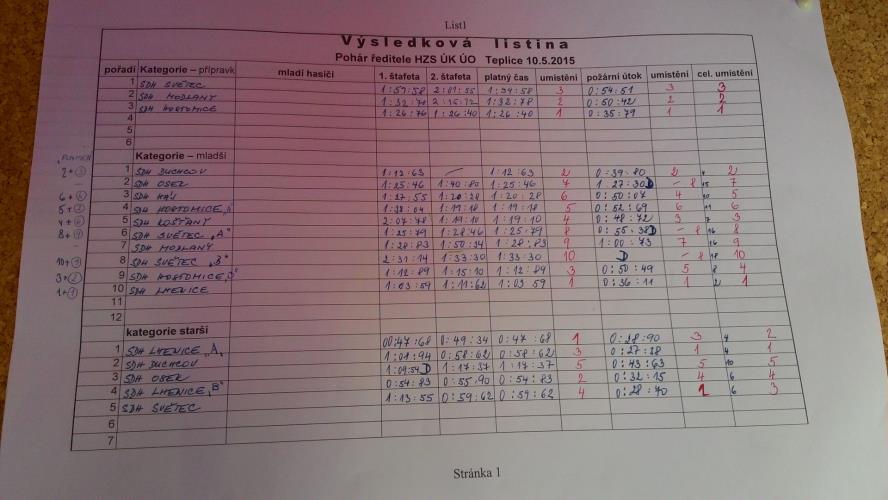 List1
Výsledková listina
Pohár ředitele HZS ÚK ÚO Teplice 10.5.2015
pořadí Kategorie – přípravk mladí hasiči 1. štafeta 2. štafeta platný čas umístění požární útok umístění cel. umístění
1 SDH SVĚTEC 1:57:58 2:01:55 3 0:54:51 3 3
2 SDH MODLANY 1:32:78 1:32:78 2 0:50:42 2 2
3 SDH HOSTOMICE 1:26:76 1:26:40 1:26:40 1 0:35:79 1 1
4
5
6
Kategorie – mladší
1 SDH DUCHCOV 1:12:63 – 1:12:63 2 0:39:80 2 4 2
2 SDH OSEK 1:25:46 1:40:80 1:25:46 7 1:27:30 D – 8 15 7
3 SDH HÁJ 1:27:55 1:20:28 1:20:28 6 0:50:07 4 10 5
4 SDH HOSTOMICE „A" 1:38:04 1:19:18 1:19:18 5 0:52:69 6 11 6
5 SDH KOŠŤANY 2:07:78 1:19:10 1:19:10 4 0:48:72 3 7 3
6 SDH SVĚTEC „A" 1:25:79 1:28:46 1:25:79 8 0:55:38 D – 8 16 8
7 SDH MODLANY 1:28:83 1:50:34 1:28:83 9 1:00:73 7 16 9
8 SDH SVĚTEC „B" 2:31:14 1:33:30 1:33:30 10 D – 8 18 10
9 SDH HOSTOMICE 1:12:89 1:15:10 1:12:89 3 0:50:49 5 8 4
10 SDH LHENICE 1:03:59 1:11:62 1:03 59 1 0:36:11 1 2 1
11
12
kategorie starší
1 SDH LHENICE „A" 00:47:68 0:49:34 0:47:68 1 0:28:90 3 4 2
2 SDH DUCHCOV 1:01:94 0:58:62 0:58:62 3 0:27:28 1 4 1
3 SDH OSEK 1:09:54 D 1:17:37 1:17:37 5 0:43:63 5 10 5
4 SDH LHENICE „B" 0:54:83 0:55:90 0:54:83 2 0:32:15 4 6 4
5 SDH SVĚTEC 1:13:55 0:59:62 0:59:62 4 0:28:70 6 3
6
7
Stránka 1